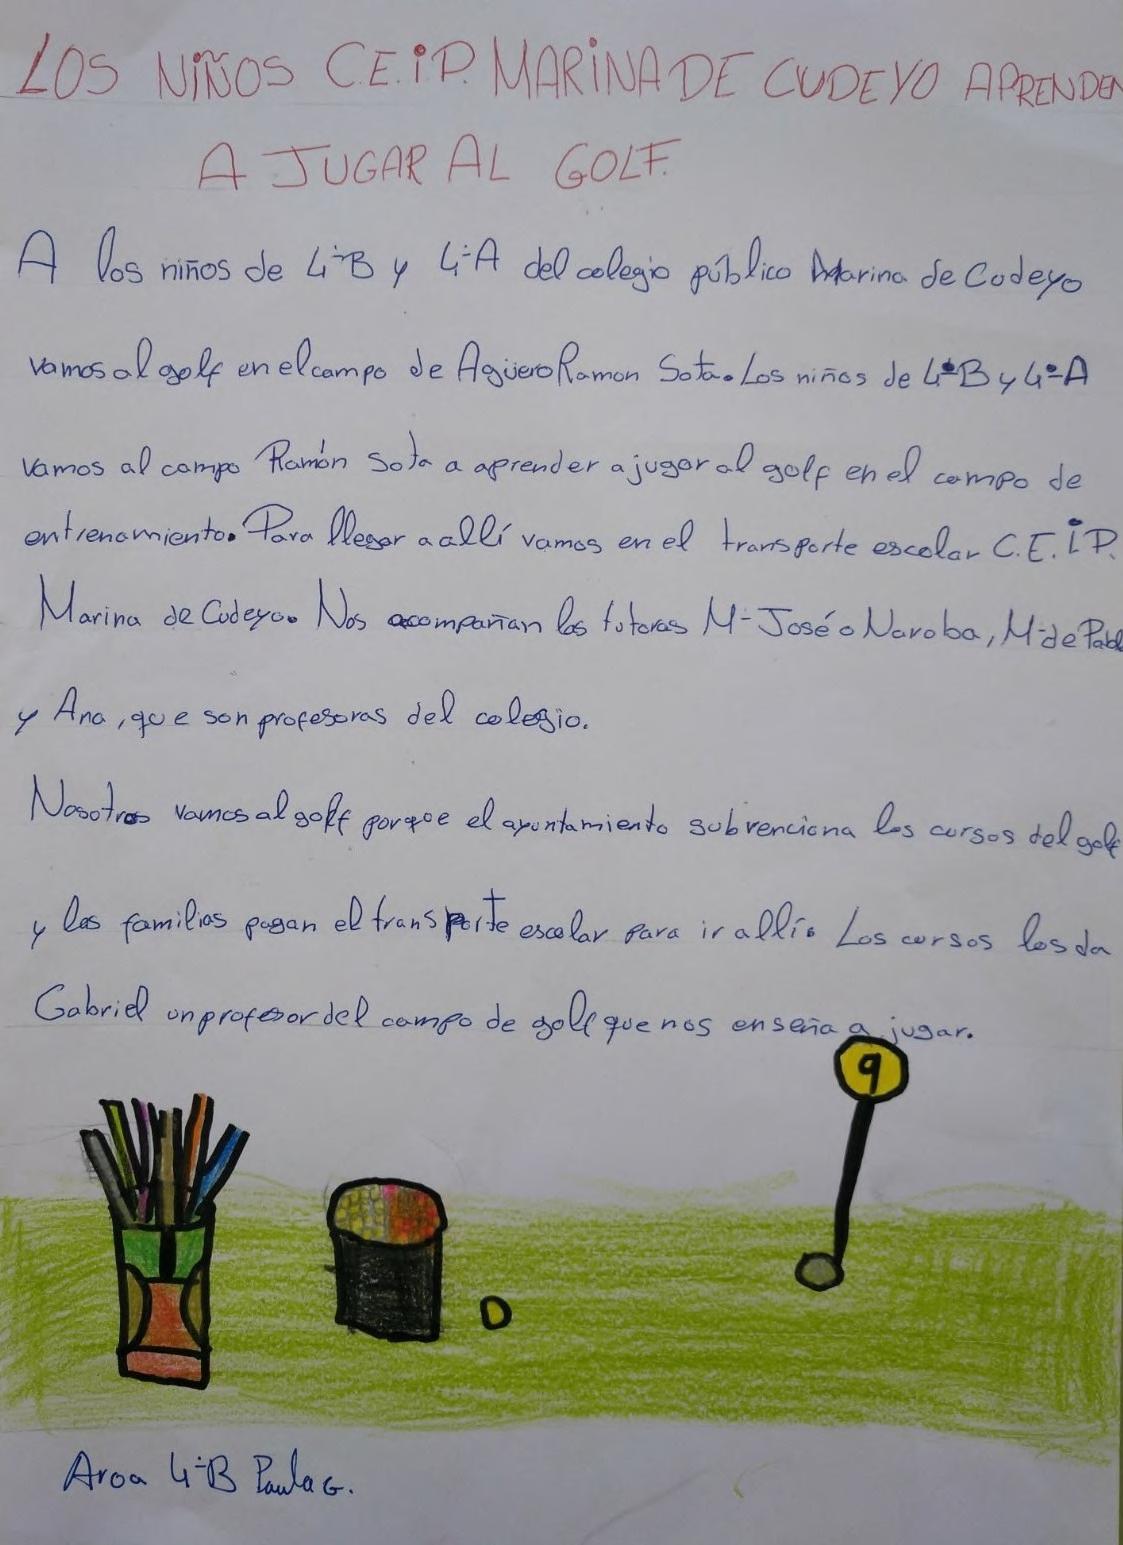 LOS NIÑOS C.E.iP. MARiNA DE CUDEYO APRENDEN
A JUGAR AL GOLF.
A los niños de 4ºB y 4ºA del colegio público Marina de Cudeyo
vamos al golf en el campo de Agüero Ramon Sota. Los niños de 4ºB y 4ºA
vamos al campo Ramón Sota a aprender a jugar al golf en el campo de
entrenamiento. Para llegar a allí vamos en el transporte escolar C.E.iP.
Marina de Cudeyo. Nos acompañan las tutoras Mª José o Naroba, Mª de Pabl
y Ana, que son profesoras del colegio.
Nosotros vamos al golf porque el ayuntamiento subvenciona los cursos del golf
y las familias pagan el transporte escolar para ir allí. Los cursos los da
Gabriel un profesor del campo de golf que nos enseña a jugar.
9
Aroa 4ºB Paula G.